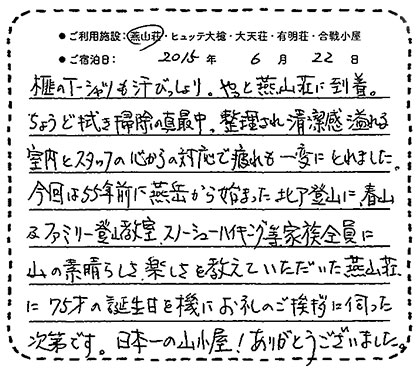 ●ご利用施設：燕山荘・ヒュッテ大槍・大天荘・有明荘・合戦小屋
●ご宿泊日： 2015年 6月 22日
樫のT-シャツも汗びっしょり。やっと燕山荘に到着。
ちょうど拭き掃除の真最中。整理され清潔感溢れる
室内とスタッフの心からの対応で疲れも一変にとれました。
今回は55年前に燕岳から始まった北ア登山に、春山
＆ファミリー登山教室、スノーシューハイキング等家族全員に
山の素晴らしさ、楽しさを教えていただいた燕山荘
に75才の誕生日を機にお礼のご挨拶に伺った
次第です。日本一の山小屋！ありがとうございました。